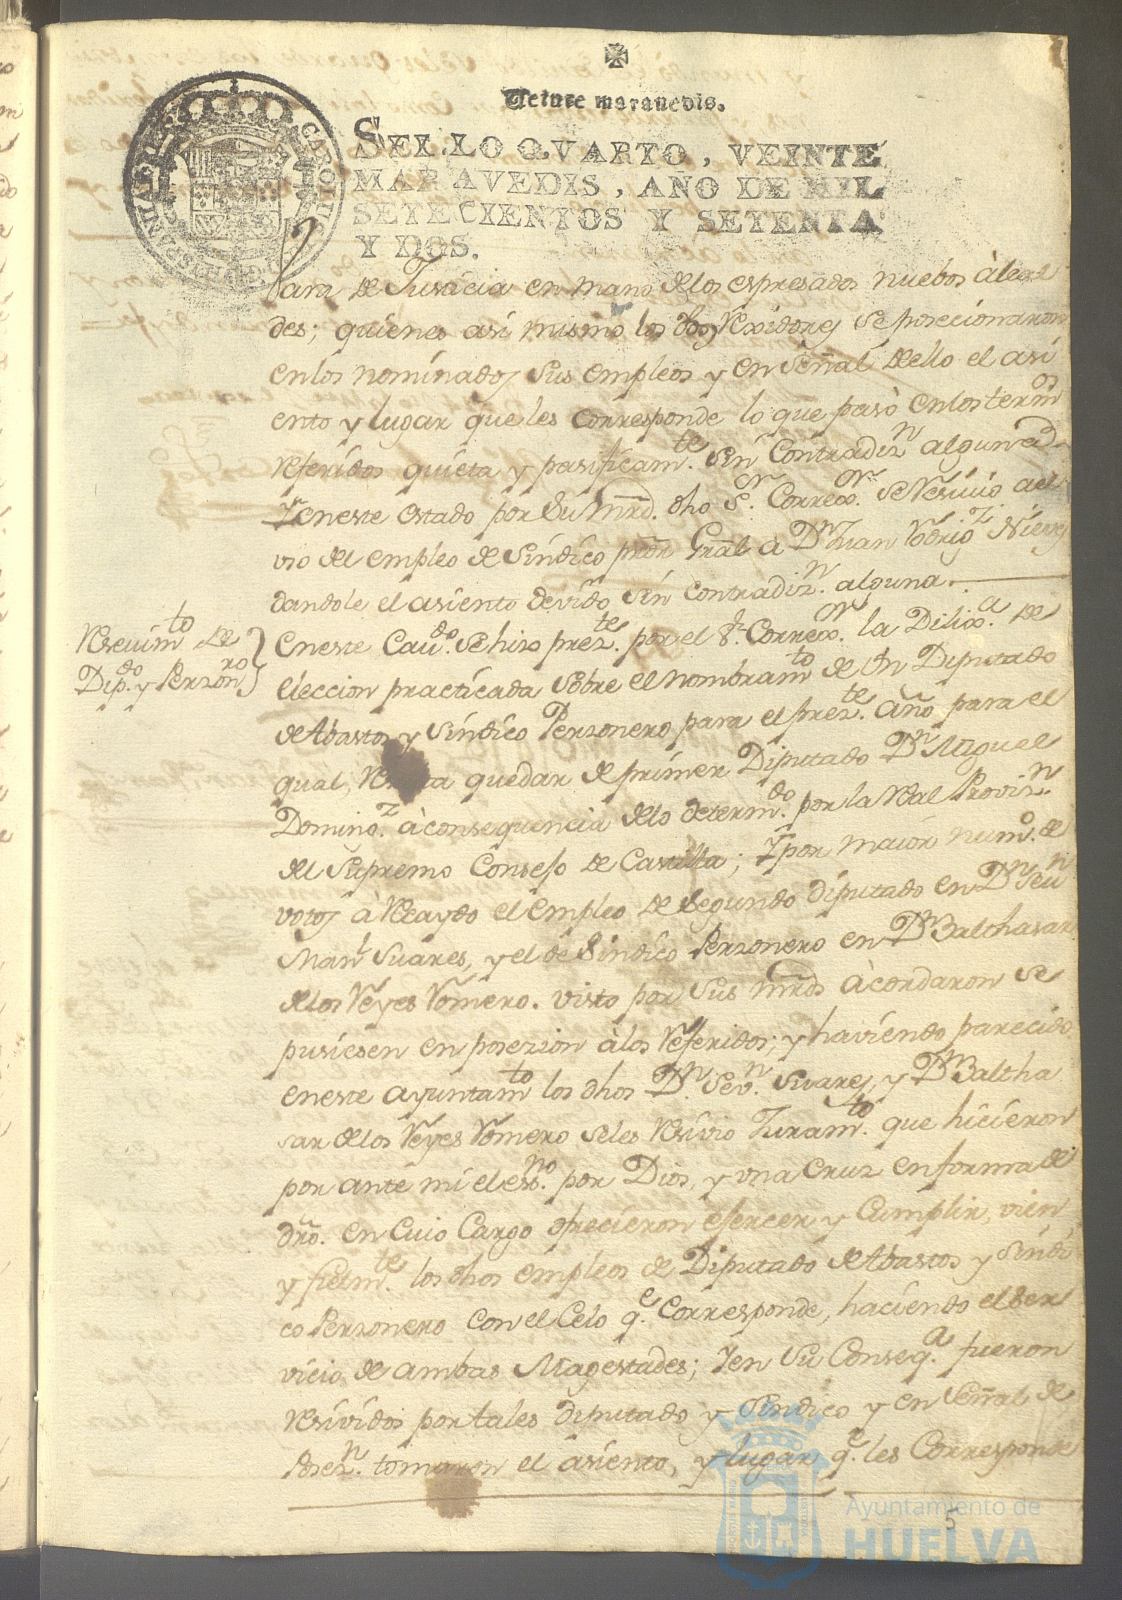 Veinte maravedis.
SELLO QVARTO, VEINTE
MARAVEDIS, AÑO DE MIL
SETECIENTOS Y SETENTA
Y DOS.
HISPANIAR CAROLUS
Vara de Justicia en mano delos espresados nuebos àlcal
des; quienes asi mismo los dhos Rexidores se posecionaron
enlos nominados sus empleos y en señal dello el asi
ento y lugar que les corresponde lo que pasò enlos termos
referidos quieta y pasificamte. sin Contradizn alguna
Yeneste estado por su Mrd. dho Sr. Correxor. se resivio al
vio del empleo de Sindico pror Gral à Dn Juan Rodrigz Nieves
dandole el asiento devido sin contradizn. alguna.
Resevimto de
Dipdo. y Perzonro
Eneste Cavdo. se hizo prezte. por el Sr. Correxor. la Dilixa. de
eleccion practicada sobre el nombramto de un Diputado
de Abastos y sindico Perzonero para el prezte. año para el
qual, quedar de primer Diputado Dn Miguel
Domingz. àconsequencia delo determdo. por la Real Provizn.
del supremo Consejo de Castilla; Ypor maior numo. de
votos à Recaydo el empleo de segundo diputado en Dn Sevn
Manl Suares, y el de Sindico Perzonero en Dn Balthasar
delos Reyes Romero. visto por sus mrds àcordaron se
pusiesen en posezion àlos referidos; y haviendo parecido
eneste ayuntamto los dhos Dn. Sevn. Suares, y Dn Baltha
sar delos Reyes Romero seles resivio Juramto. que hicieron
por ante mi el esno. por Dios, y una Cruz enforma de
dro. en Cuio Cargo ofrecieron ejercer y Cumplir, vien
y fielmte. los dhos empleos de Diputado de Abastos y Sindi
co Perzonero con el Celo qe. Corresponde, haciendo el ser
vicio de ambas Magestades; Yen su Conseqa. fueron
resividos por tales diputado y Sindico y en señal de
Posezn. tomaron el asiento, y lugar qe. les Corresponde
5
Ayuntamiento de
HUELVA